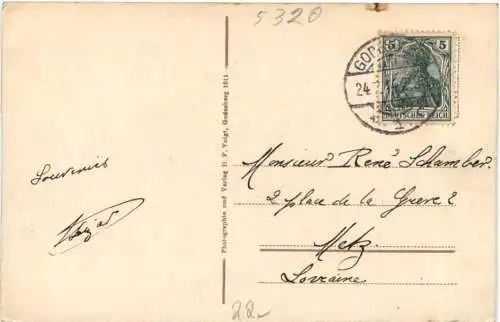 5320
5 5
DEUTSCHES REICH
GOD
24.
Souvenir
Photographie und Verlag D. F. Voigt, Godesberg 1911
Monsieur René Schamber.
2 place de la Greve 2
Metz
Lorraine
22-